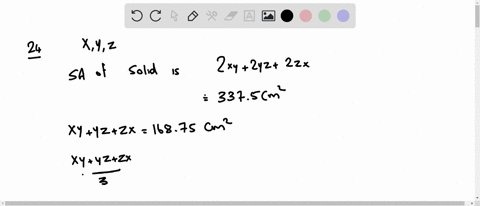 24 X,Y,Z
SA of Solid is 2xy+2yz+2zx
= 337.5 cm²
xy+yz+zx = 168.75 cm²
xy+yz+zx
3